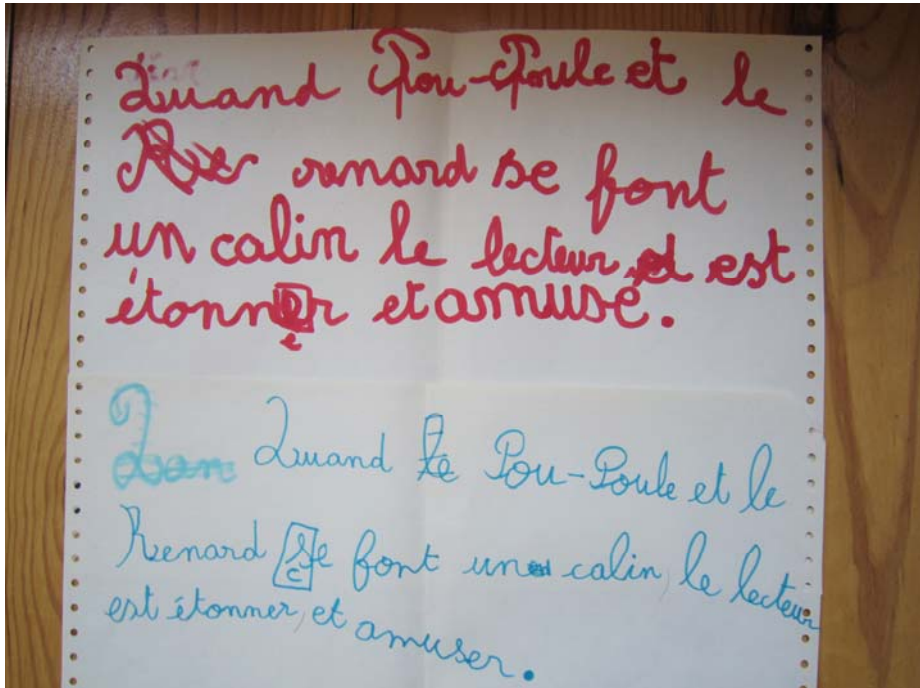 Quand Pou-Poule et le
Re renard se font
un calin le lecteur est
étonner et amusé.
e
Quan Quand le Pou-Poule et le
Renard se font un calin, le lecteur
c
est étonner, et amuser.